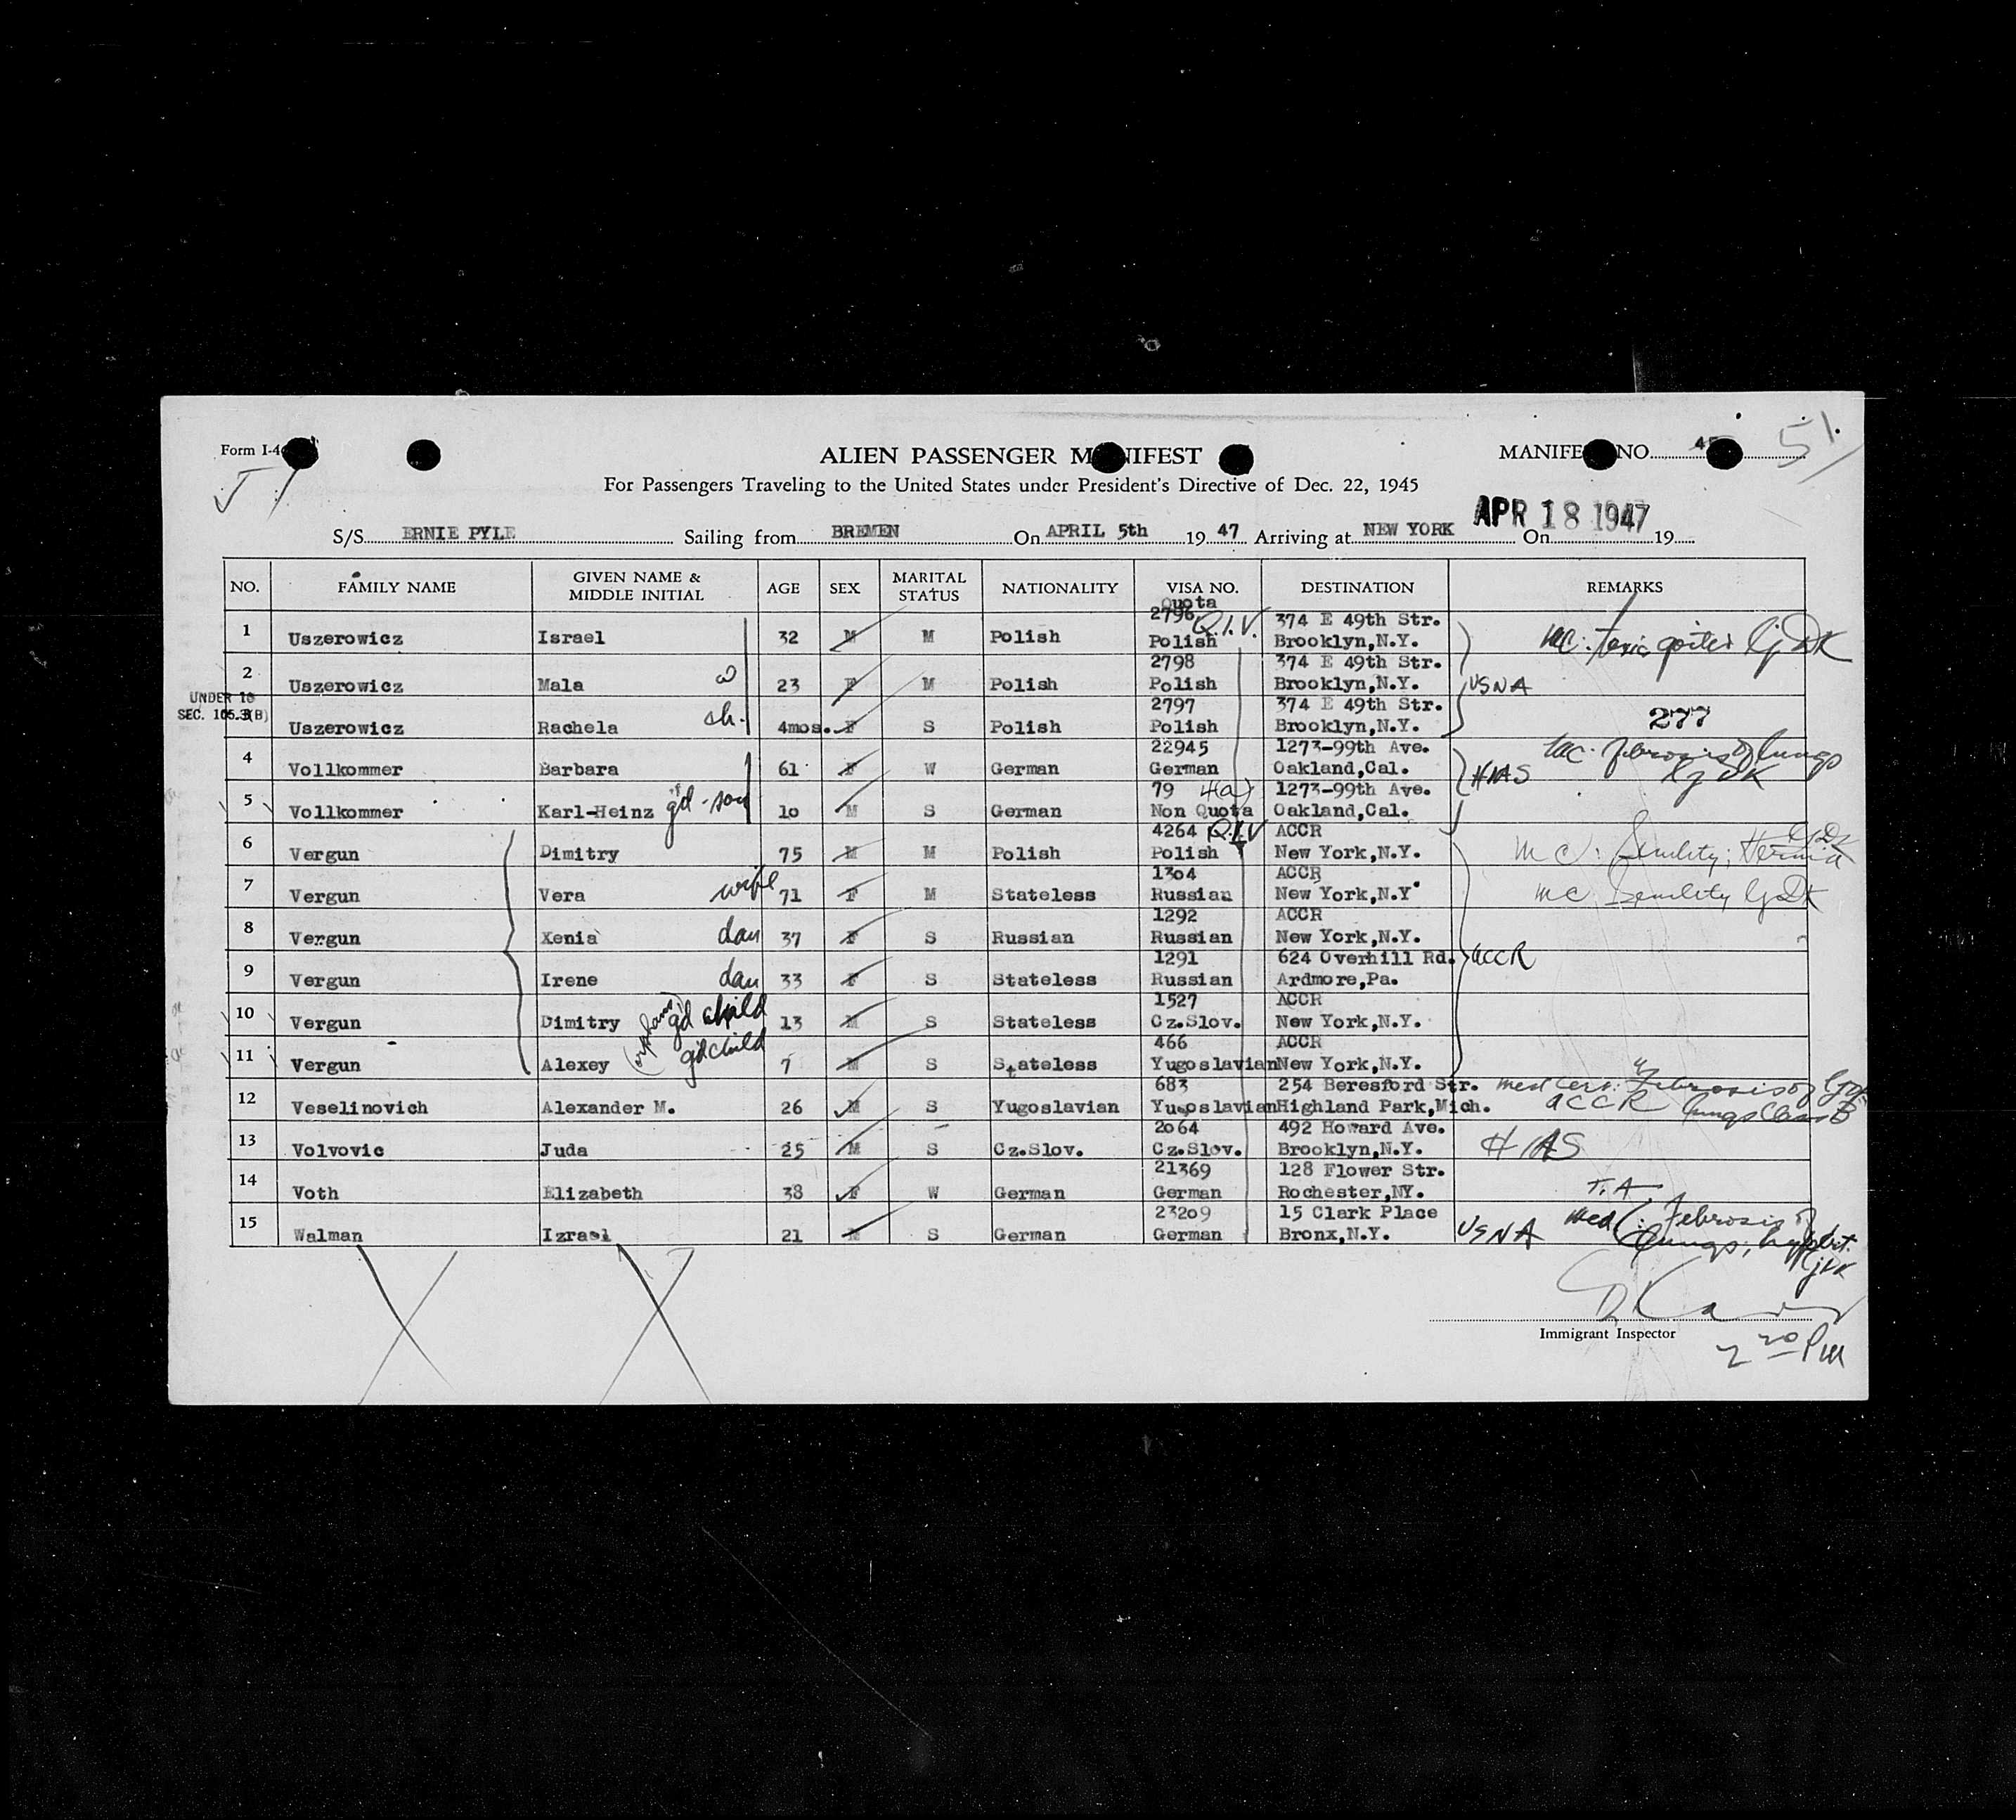 Form I-4
ALIEN PASSENGER M NIFEST
MANIFE NO. 4
51
For Passengers Traveling to the United States under President's Directive of Dec. 22, 1945
S/S ERNIE PYLE Sailing from BREMEN On APRIL 5th 19 47 Arriving at NEW YORK On APR 18 1947 19
NO. FAMILY NAME GIVEN NAME & MIDDLE INITIAL AGE SEX MARITAL STATUS NATIONALITY VISA NO. DESTINATION REMARKS
Quota
2796 Q.I.V. 374 E 49th Str.
1 Uszerowicz Israel 32 M M Polish Polish Brooklyn,N.Y. MC: toxic goiter
2798 374 E 49th Str.
2 Uszerowicz Mala w 23 F M Polish Polish Brooklyn,N.Y. USNA
UNDER 16
SEC. 105.3(B)
2797 374 E 49th Str.
3 Uszerowicz Rachela ch. 4mos. F S Polish Polish Brooklyn,N.Y. 277
22945 1273-99th Ave.
4 Vollkommer Barbara 61 F W German German Oakland,Cal. HIAS MC. fibrosis of lungs
79 4(a) 1273-99th Ave.
5 Vollkommer Karl-Heinz gd-son 10 M S German Non Quota Oakland,Cal.
4264 Q.I.V ACCR
6 Vergun Dimitry 75 M M Polish Polish New York,N.Y. MC: Senility; Hernia
1304 ACCR
7 Vergun Vera wife 71 F M Stateless Russian New York,N.Y MC Senility
1292 ACCR
8 Vergun Xenia dau 37 F S Russian Russian New York,N.Y.
1291 624 Overhill Rd.
9 Vergun Irene dau 33 F S Stateless Russian Ardmore,Pa. ACCR
1527 ACCR
10 Vergun Dimitry (orphan) gd child 13 M S Stateless Cz.Slov. New York,N.Y.
466 ACCR
11 Vergun Alexey gdchild 7 M S Stateless Yugoslavian New York,N.Y.
683 254 Beresford Str. Med Cert: Fibrosis of
12 Veselinovich Alexander M. 26 M S Yugoslavian Yugoslavian Highland Park,Mich. ACCR lungs Class B
2064 492 Howard Ave.
13 Volvovic Juda 25 M S Cz.Slov. Cz.Slov. Brooklyn,N.Y. HIAS
21369 128 Flower Str.
14 Voth Elizabeth 38 F W German German Rochester,NY. T.A
23209 15 Clark Place
15 Walman Izrael 21 M S German German Bronx,N.Y. USNA Med C: Febrosis of lungs,
Immigrant Inspector
2 20 PM